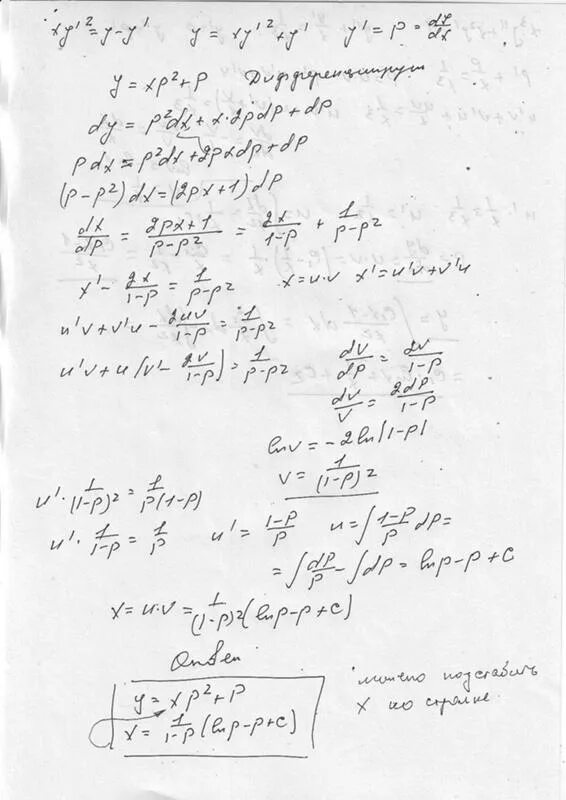 xy'² = y - y'    y = xy'² + y'    y' = p = dy/dx
y = xp² + p    Дифференцируем
dy = p²dx + x·2pdp + dp
pdx = p²dx + 2pxdp + dp
(p-p²)dx = (2px+1)dp
dx/dp = (2px+1)/(p-p²) = 2x/(1-p) + 1/(p-p²)
x' - 2x/(1-p) = 1/(p-p²)    x = u·v    x' = u'v + v'u
u'v + v'u - 2uv/(1-p) = 1/(p-p²)
u'v + u(v' - 2v/(1-p)) = 1/(p-p²)    dv/dp = 2v/(1-p)
dv/v = 2dp/(1-p)
lnv = -2ln|1-p|
v = 1/(1-p)²
u'·1/(1-p)² = 1/(p(1-p))
u'·1/(1-p) = 1/p    u' = (1-p)/p    u = ∫(1-p)/p dp =
= ∫dp/p - ∫dp = lnp - p + C
x = u·v = 1/(1-p)² (lnp - p + C)
Ответ
y = xp² + p
x = 1/(1-p) (lnp - p + C)
можно подставить
x по стрелке